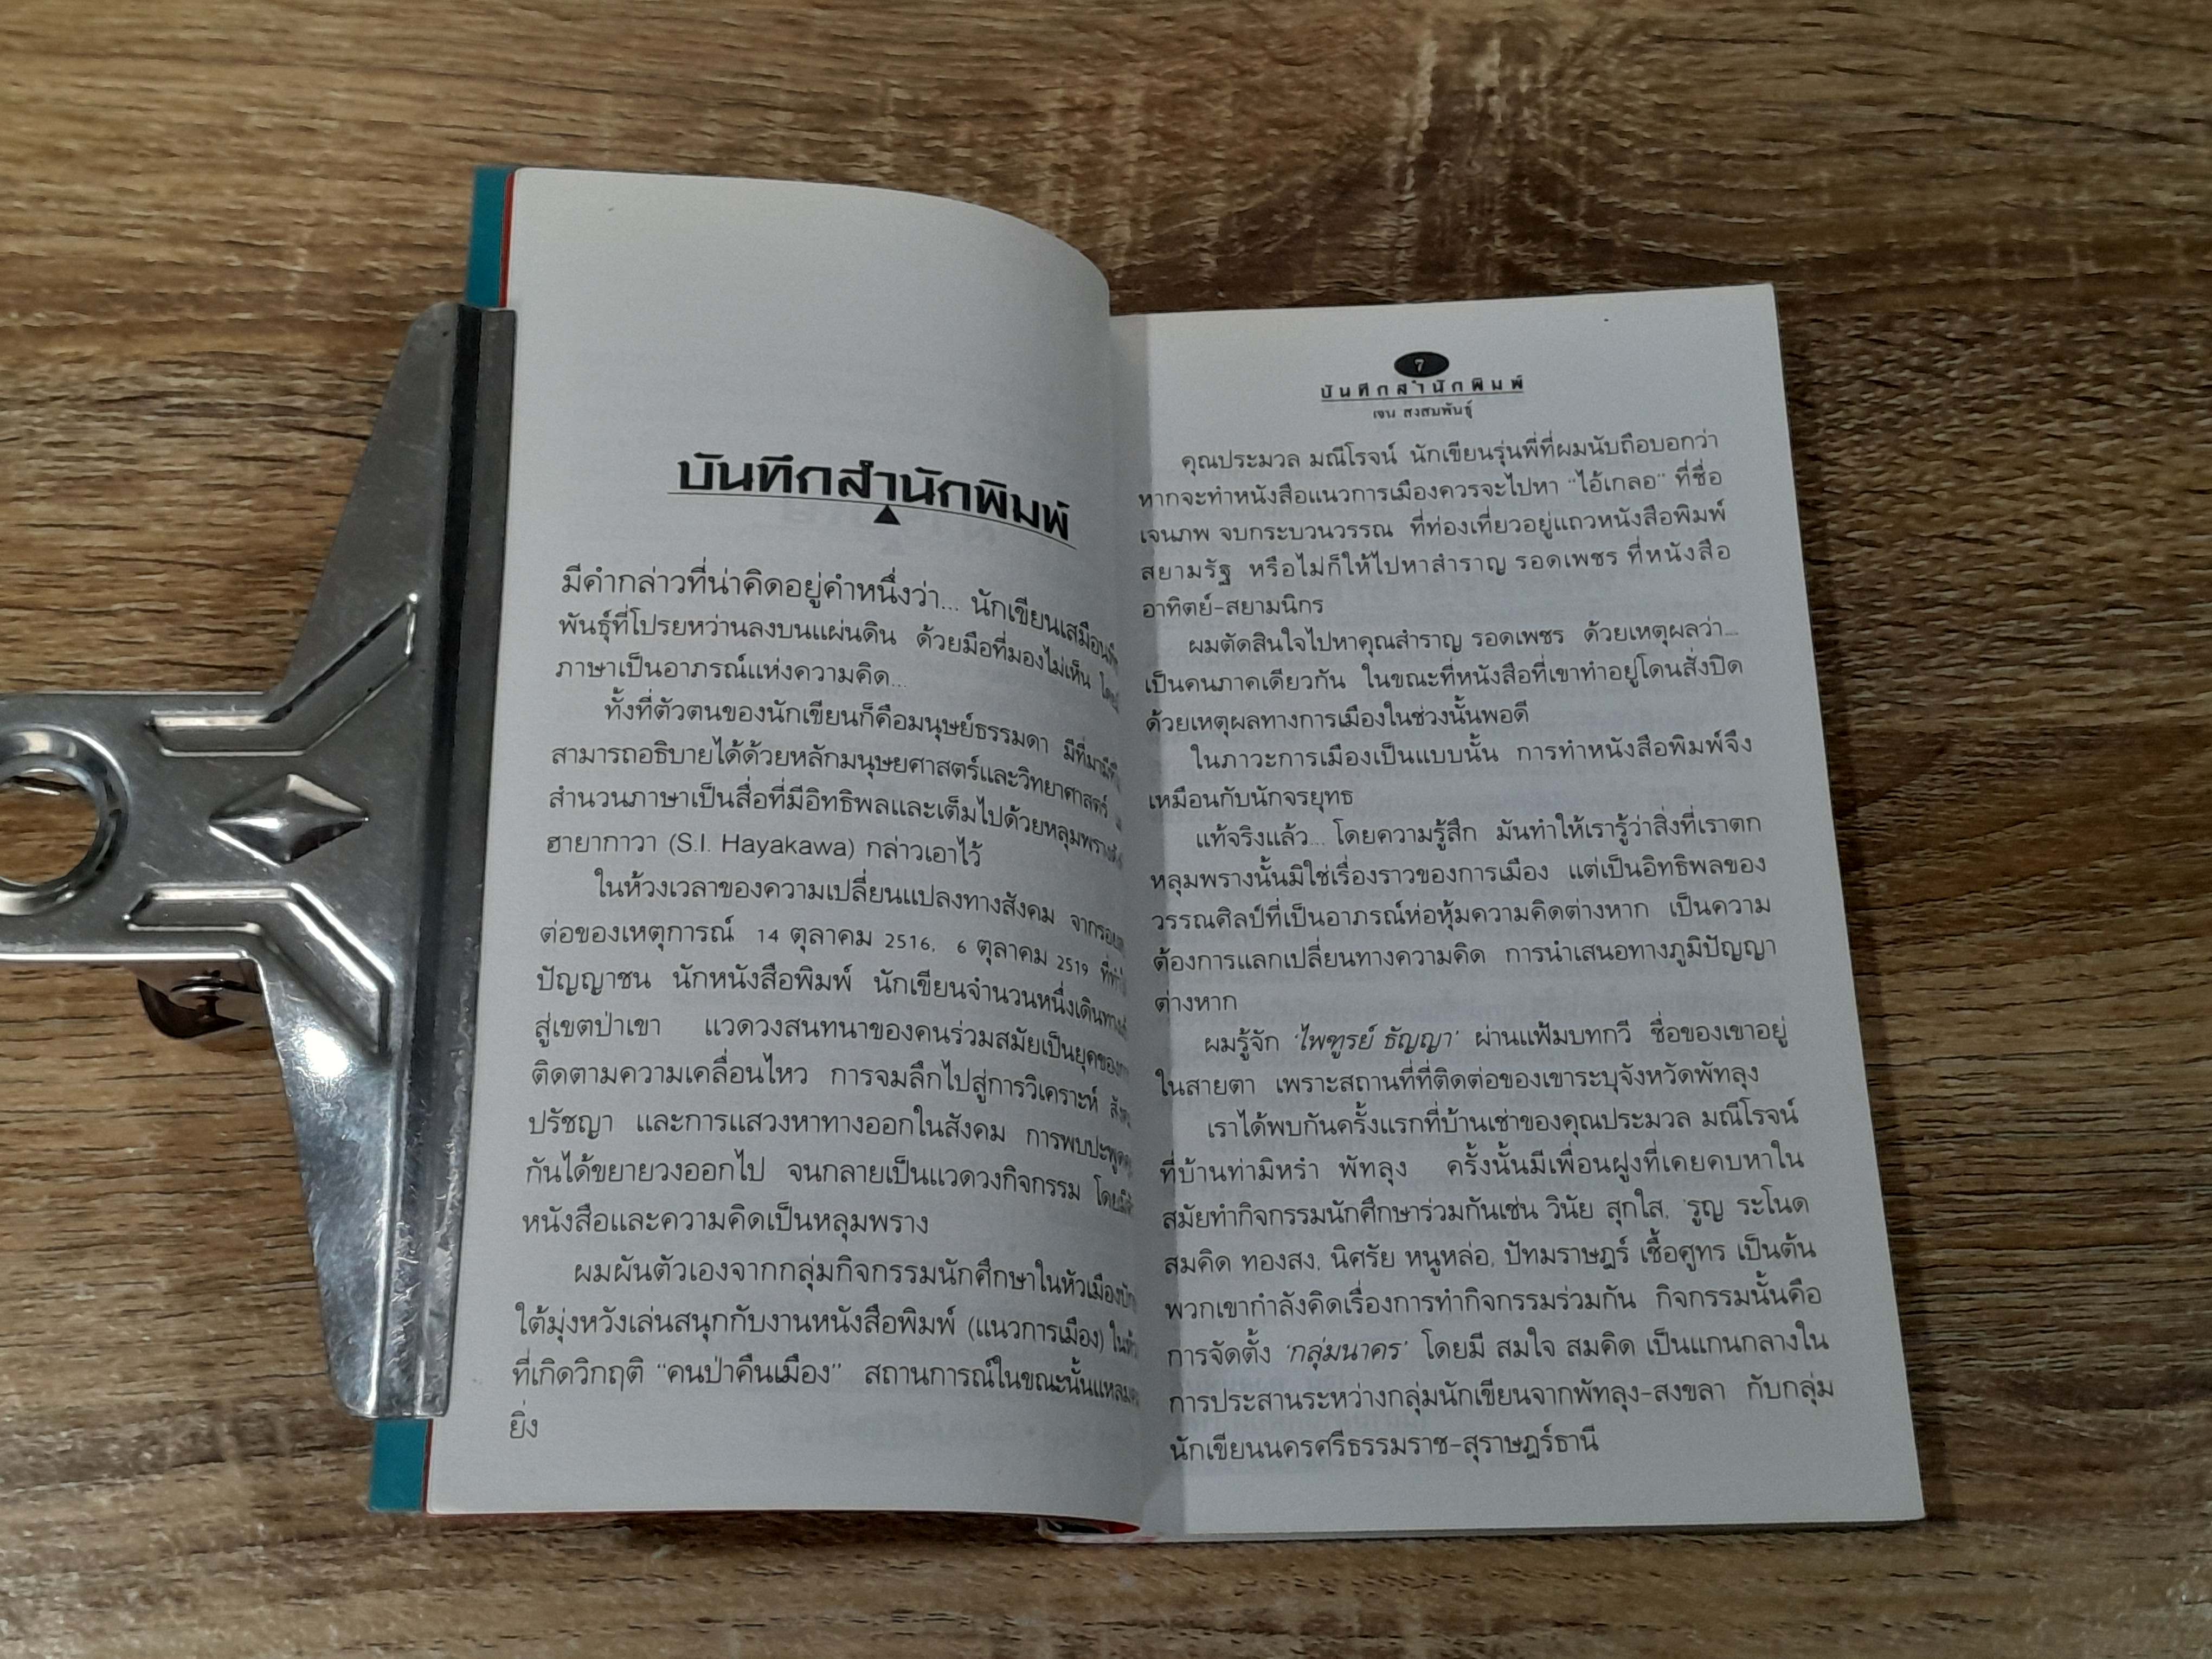 บันทึกสำนักพิมพ์
มีคำกล่าวที่น่าคิดอยู่คำหนึ่งว่า... นักเขียนเสมือน
พันธุ์ที่โปรยหว่านลงบนแผ่นดิน ด้วยมือที่มองไม่เห็น
ภาษาเป็นอาภรณ์แห่งความคิด...
ทั้งที่ตัวตนของนักเขียนก็คือมนุษย์ธรรมดา มีที่มามีที่
สามารถอธิบายได้ด้วยหลักมนุษยศาสตร์และวิทยาศาสตร์
สำนวนภาษาเป็นสื่อที่มีอิทธิพลและเต็มไปด้วยหลุมพราง
ฮายากาวา (S.I. Hayakawa) กล่าวเอาไว้
ในห้วงเวลาของความเปลี่ยนแปลงทางสังคม
ต่อของเหตุการณ์ 14 ตุลาคม 2516, 6 ตุลาคม 2519
ปัญญาชน นักหนังสือพิมพ์ นักเขียนจำนวนหนึ่งเดินทาง
สู่เขตป่าเขา แวดวงสนทนาของคนร่วมสมัยเป็นยุคของ
ติดตามความเคลื่อนไหว การจมลึกไปสู่การวิเคราะห์
ปรัชญา และการแสวงหาทางออกในสังคม การพบปะ
กันได้ขยายวงออกไป จนกลายเป็นแวดวงกิจกรรม
หนังสือและความคิดเป็นหลุมพราง
ผมผันตัวเองจากกลุ่มกิจกรรมนักศึกษาในหัวเมือง
ใต้มุ่งหวังเล่นสนุกกับงานหนังสือพิมพ์ (แนวการเมือง)
ที่เกิดวิกฤติ "คนป่าคืนเมือง" สถานการณ์ในขณะนั้น
ยิ่ง
7
บันทึกสำนักพิมพ์
เจน สงสมพันธุ์
คุณประมวล มณีโรจน์ นักเขียนรุ่นพี่ที่ผมนับถือบอกว่า
หากจะทำหนังสือแนวการเมืองควรจะไปหา "ไอ้เกลอ" ที่ชื่อ
เจนภพ จบกระบวนวรรณ ที่ท่องเที่ยวอยู่แถวหนังสือพิมพ์
สยามรัฐ หรือไม่ก็ให้ไปหาสำราญ รอดเพชร ที่หนังสือ
อาทิตย์-สยามนิกร
ผมตัดสินใจไปหาคุณสำราญ รอดเพชร ด้วยเหตุผลว่า...
เป็นคนภาคเดียวกัน ในขณะที่หนังสือที่เขาทำอยู่โดนสั่งปิด
ด้วยเหตุผลทางการเมืองในช่วงนั้นพอดี
ในภาวะการเมืองเป็นแบบนั้น การทำหนังสือพิมพ์จึง
เหมือนกับนักจรยุทธ
แท้จริงแล้ว... โดยความรู้สึก มันทำให้เรารู้ว่าสิ่งที่เราตก
หลุมพรางนั้นมิใช่เรื่องราวของการเมือง แต่เป็นอิทธิพลของ
วรรณศิลป์ที่เป็นอาภรณ์ห่อหุ้มความคิดต่างหาก เป็นความ
ต้องการแลกเปลี่ยนทางความคิด การนำเสนอทางภูมิปัญญา
ต่างหาก
ผมรู้จัก 'ไพฑูรย์ ธัญญา' ผ่านแฟ้มบทกวี ชื่อของเขาอยู่
ในสายตา เพราะสถานที่ที่ติดต่อของเขาระบุจังหวัดพัทลุง
เราได้พบกันครั้งแรกที่บ้านเช่าของคุณประมวล มณีโรจน์
ที่บ้านท่ามิหรำ พัทลุง ครั้งนั้นมีเพื่อนฝูงที่เคยคบหาใน
สมัยทำกิจกรรมนักศึกษาร่วมกันเช่น วินัย สุกใส, 'รูญ ระโนด
สมคิด ทองสง, นิศรัย หนูหล่อ, ปัทมราษฎร์ เชื้อศูทร เป็นต้น
พวกเขากำลังคิดเรื่องการทำกิจกรรมร่วมกัน กิจกรรมนั้นคือ
การจัดตั้ง 'กลุ่มนาคร' โดยมี สมใจ สมคิด เป็นแกนกลางใน
การประสานระหว่างกลุ่มนักเขียนจากพัทลุง-สงขลา กับกลุ่ม
นักเขียนนครศรีธรรมราช-สุราษฎร์ธานี